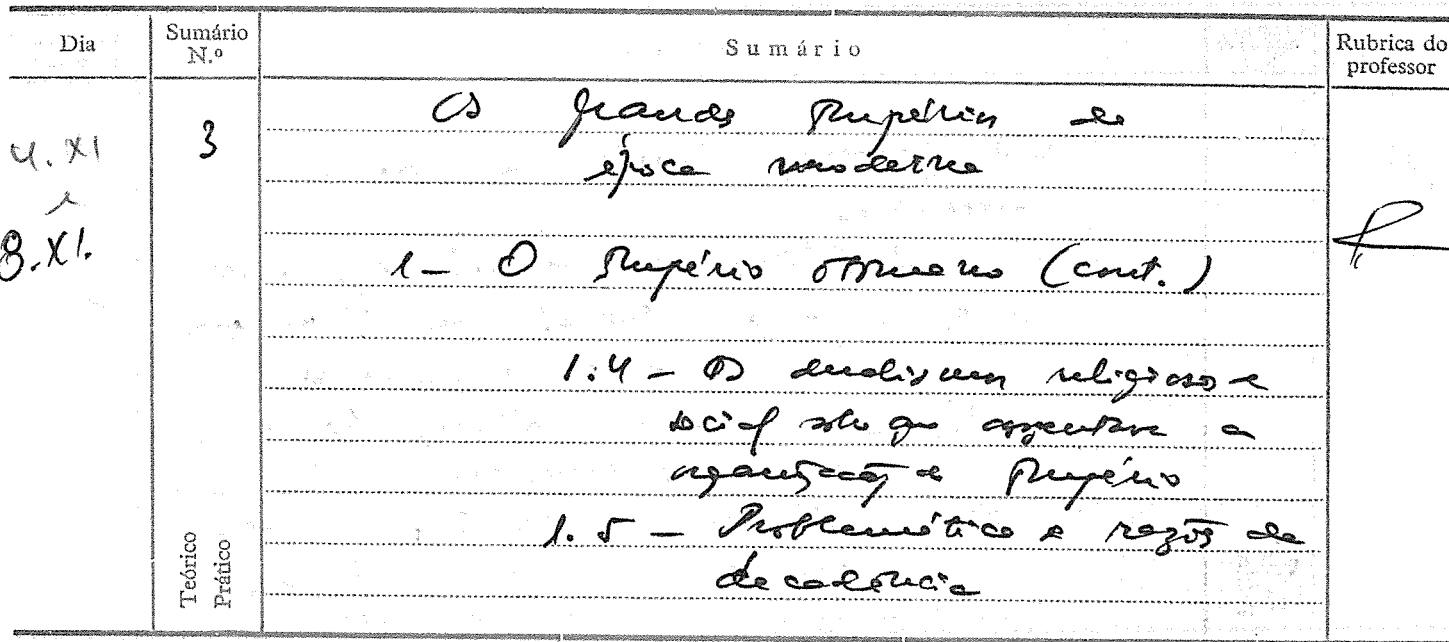 Dia
Sumário
N.º
Sumário
Rubrica do
professor
4. XI
e
8. XI.
3
Os grandes Impérios da
época moderna
1 - O Império otomano (cont.)
1.4 - O dualismo religioso e
social sobre que assentava a
organização do Império
1.5 - Problemática e razões da
decadência
Teórico
Prático